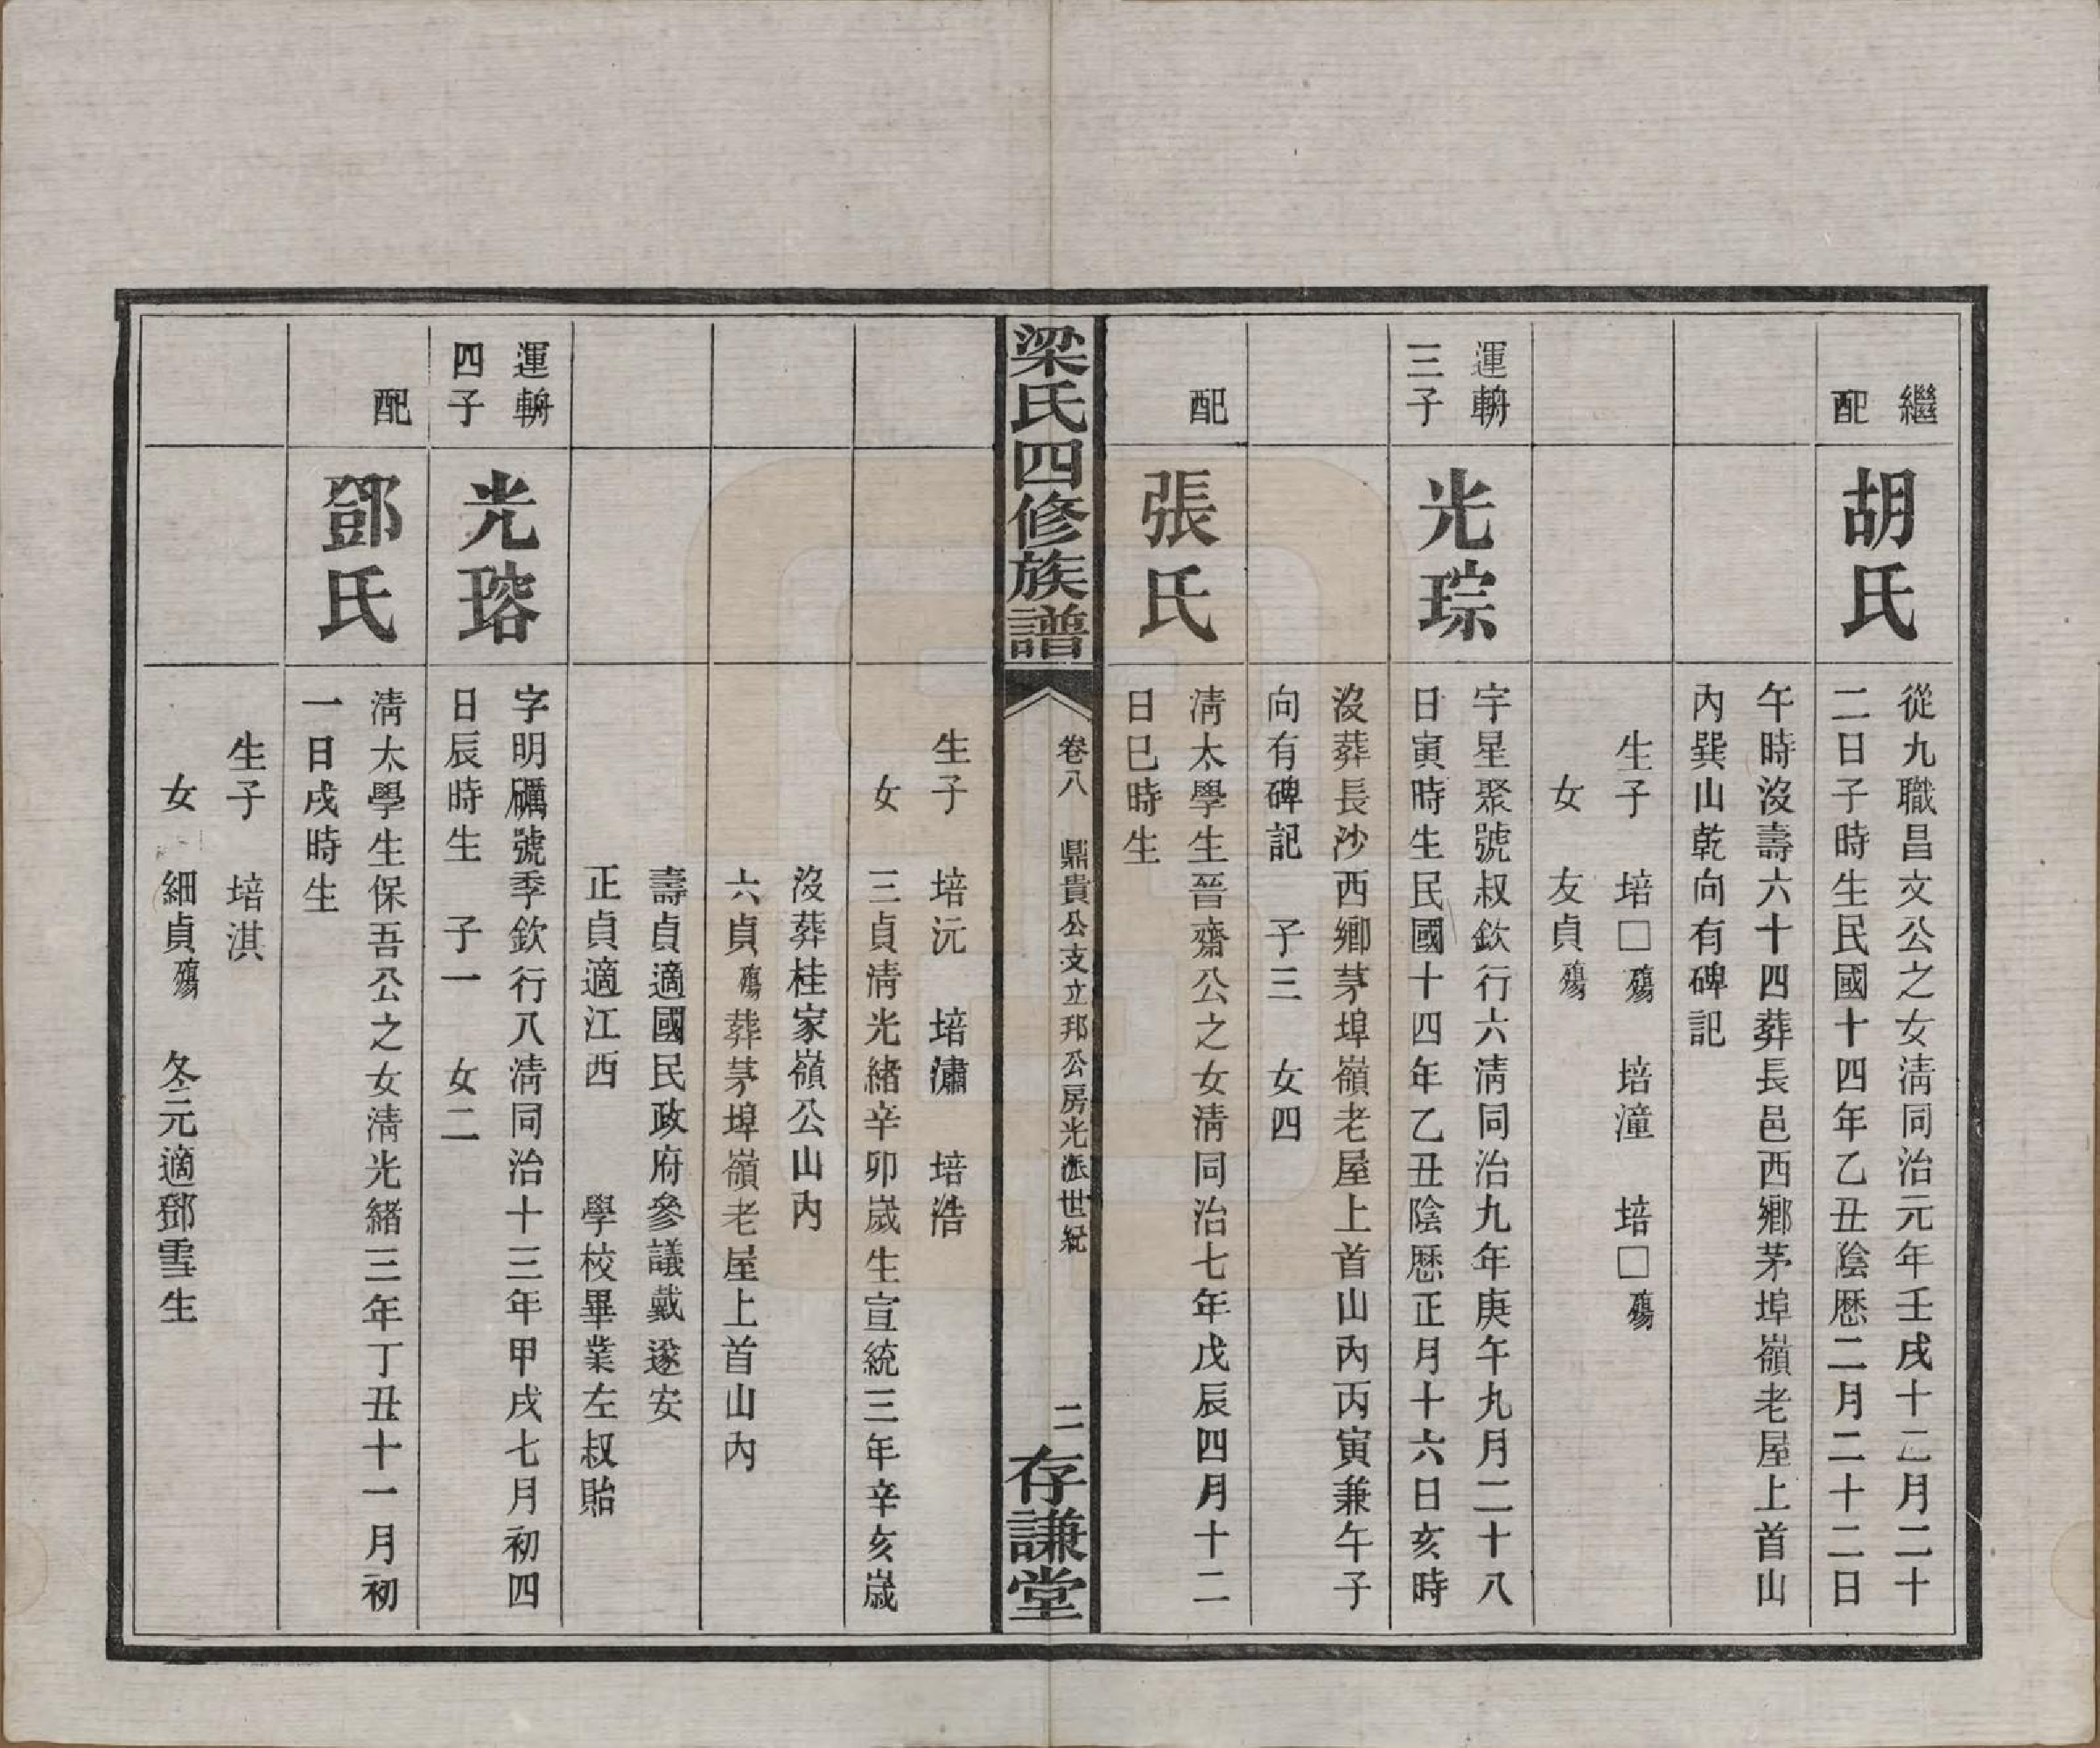 繼
配
胡氏
從九職昌文公之女淸同治元年壬戌十二月二十
二日子時生民國十四年乙丑陰歷二月二十二日
午時沒壽六十四葬長邑西鄉茅埠嶺老屋上首山
內巽山乾向有碑記
生子 培□殤 培潼 培□殤
女 友貞殤
運輈
三子
光琮
字星聚號叔欽行六淸同治九年庚午九月二十八
日寅時生民國十四年乙丑陰歷正月十六日亥時
沒葬長沙西鄉茅埠嶺老屋上首山內丙寅兼午子
向有碑記 子三 女四
配
張氏
淸太學生晉齋公之女淸同治七年戊辰四月十二
日巳時生
梁氏四修族譜
卷八 鼎貴公支立邦公房光派世紀
二
存謙堂
生子 培沅 培潚 培浩
女 三貞淸光緒辛卯嵗生宣統三年辛亥嵗
沒葬桂家嶺公山內
六貞殤葬茅埠嶺老屋上首山內
壽貞適國民政府參議戴遂安
正貞適江西 學校畢業左叔貽
運輈
四子
光瑢
字明礪號季欽行八淸同治十三年甲戌七月初四
日辰時生 子一 女二
配
鄧氏
淸太學生保吾公之女淸光緒三年丁丑十一月初
一日戌時生
生子 培淇
女 細貞殤 冬元適鄧雪生